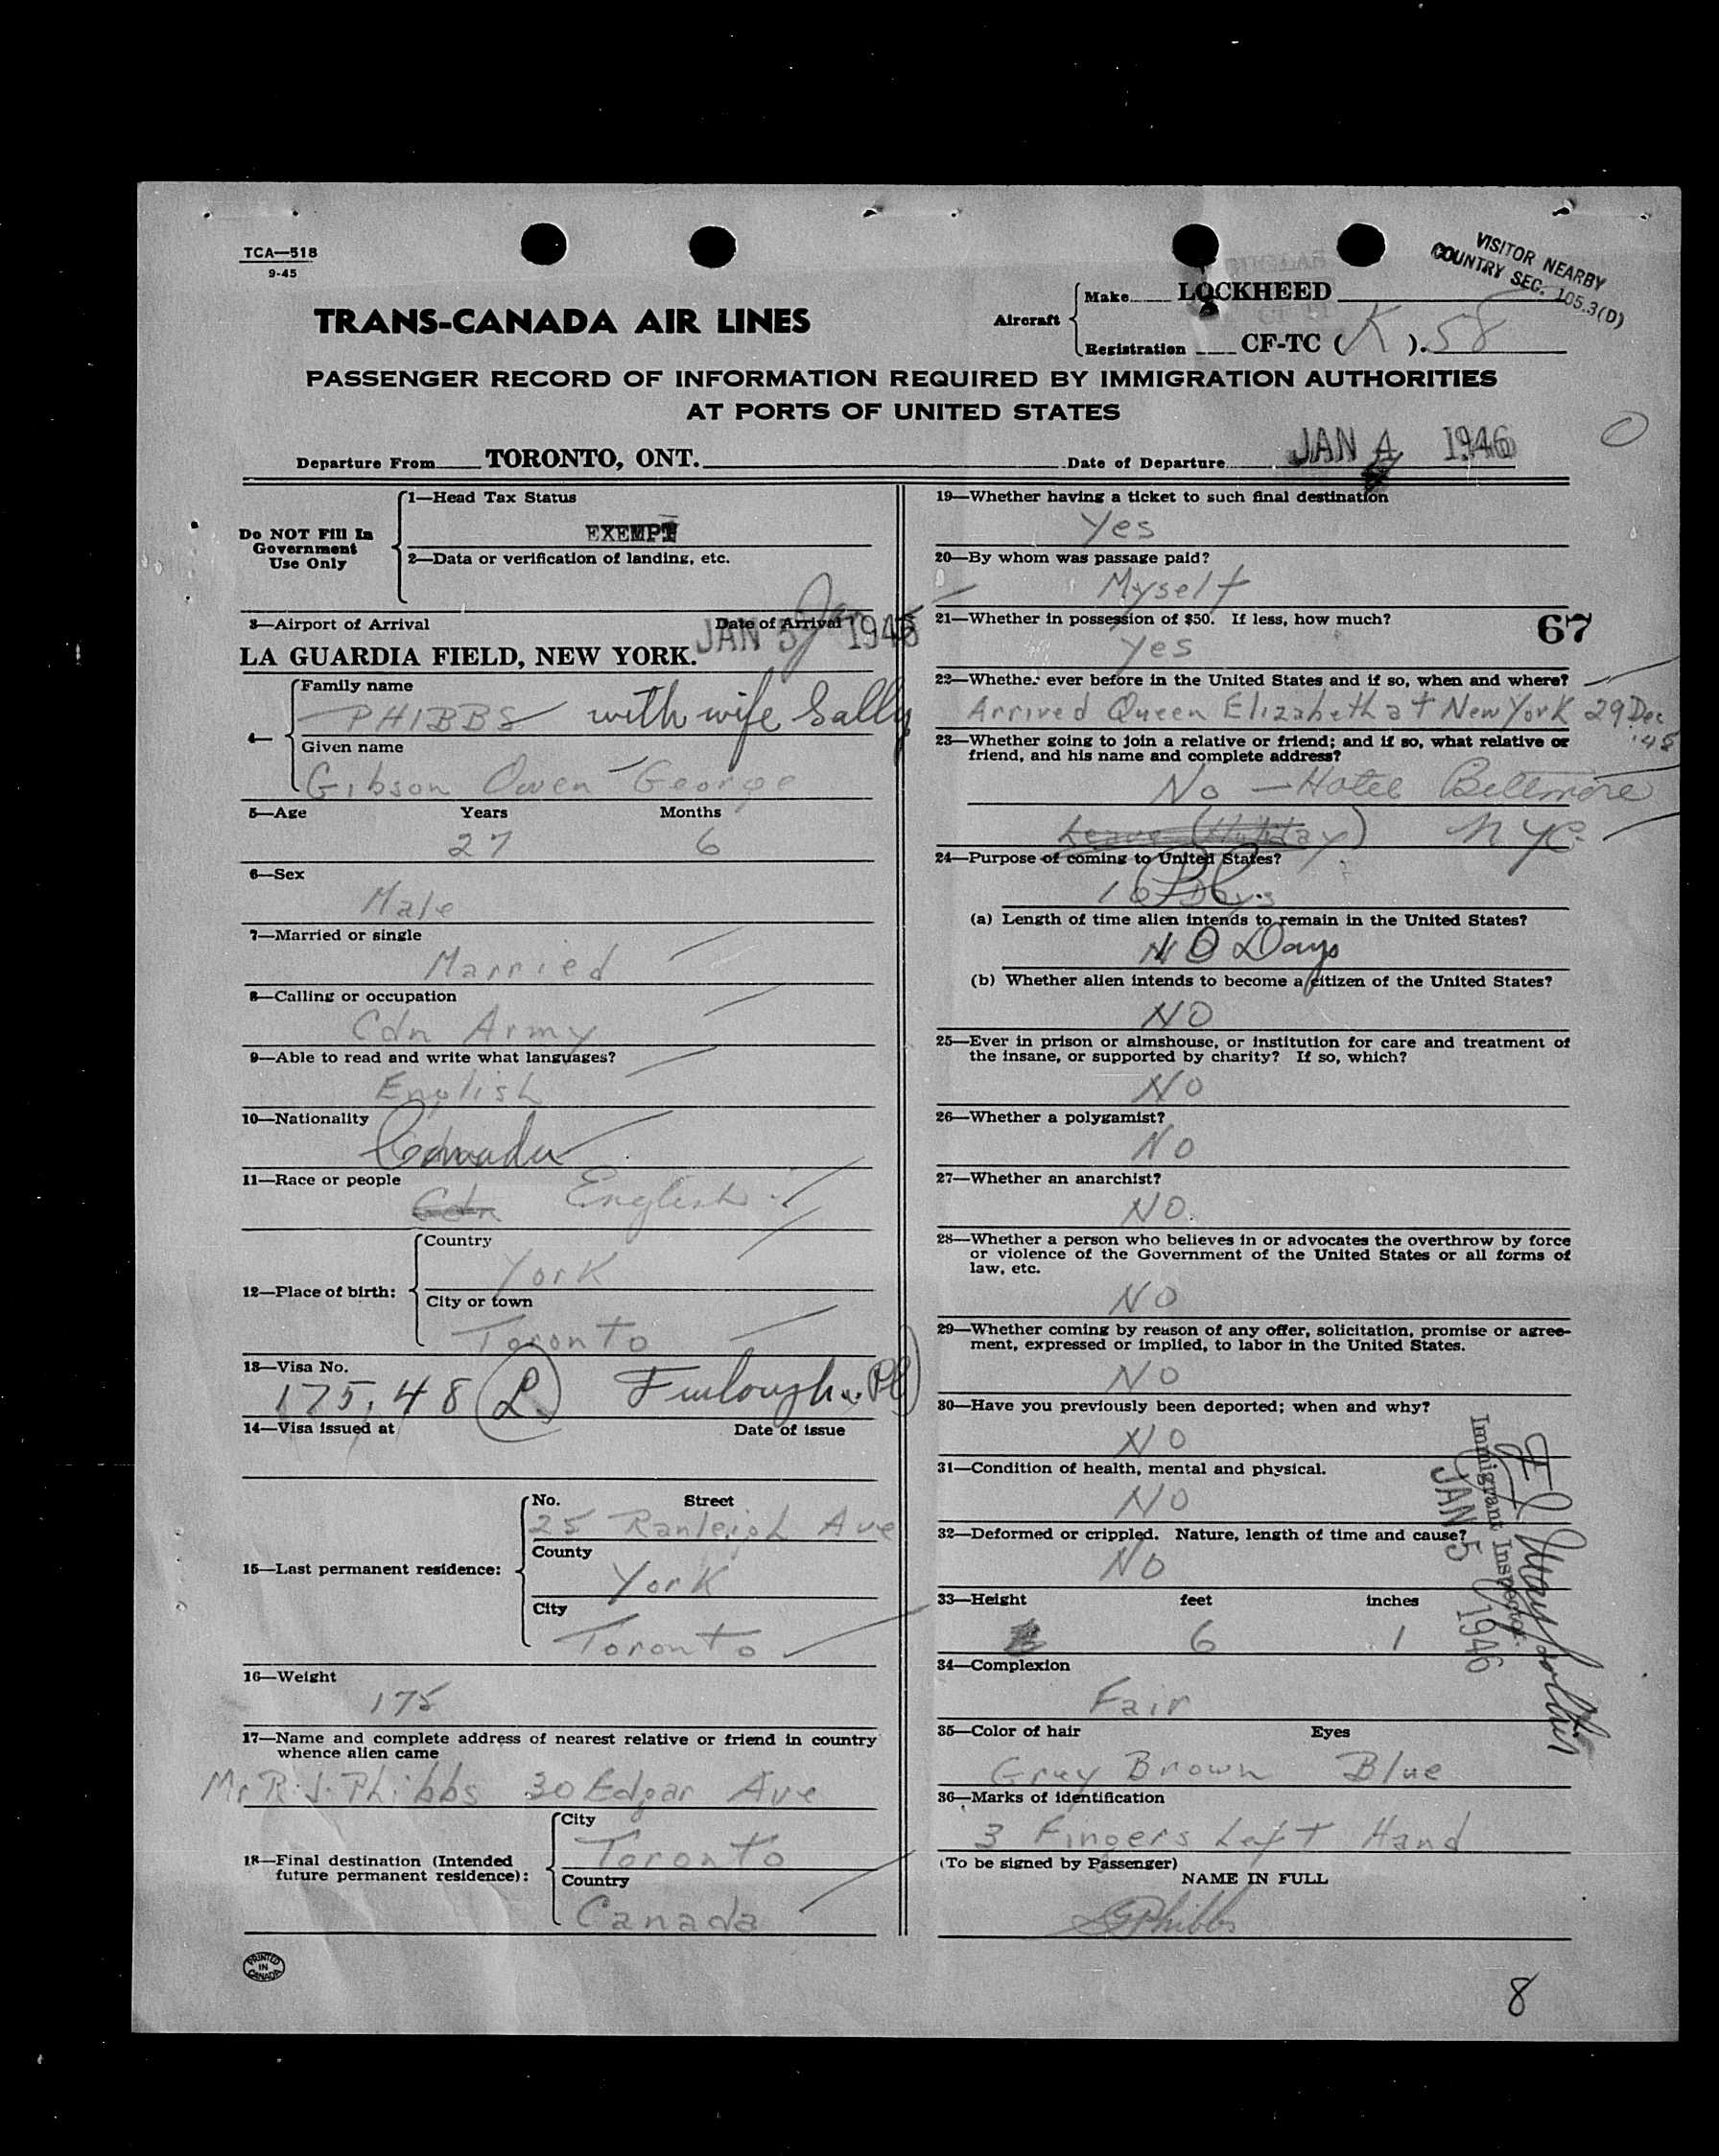 TCA—518
9-45
VISITOR NEARBY
COUNTRY SEC. 105.3(D)
TRANS-CANADA AIR LINES
Aircraft
Make LOCKHEED
Registration CF-TC ( K ). 58
PASSENGER RECORD OF INFORMATION REQUIRED BY IMMIGRATION AUTHORITIES
AT PORTS OF UNITED STATES
Departure From TORONTO, ONT. Date of Departure JAN 4 1946
Do NOT Fill In
Government
Use Only
1—Head Tax Status
EXEMPT
2—Data or verification of landing, etc.
3—Airport of Arrival Date of Arrival
LA GUARDIA FIELD, NEW YORK. JAN 5 1946
4—
Family name
PHIBBS with wife Sally
Given name
Gibson Owen George
5—Age Years Months
27 6
6—Sex
Male
7—Married or single
Married
8—Calling or occupation
Cdn Army
9—Able to read and write what languages?
English
10—Nationality
Canada
11—Race or people
Cdn English
12—Place of birth:
Country
York
City or town
Toronto
13—Visa No.
175.48 (L) Furlough
14—Visa issued at Date of issue
15—Last permanent residence:
No. Street
25 Ranleigh Ave
County
York
City
Toronto
16—Weight
175
17—Name and complete address of nearest relative or friend in country
whence alien came
Mr R. J. Phibbs 30 Edgar Ave
18—Final destination (Intended
future permanent residence):
City
Toronto
Country
Canada
PRINTED
IN
CANADA
19—Whether having a ticket to such final destination
Yes
20—By whom was passage paid?
Myself
21—Whether in possession of $50. If less, how much?
67
Yes
22—Whether ever before in the United States and if so, when and where?
Arrived Queen Elizabeth at New York 29 Dec
'45
23—Whether going to join a relative or friend; and if so, what relative or
friend, and his name and complete address?
No — Hotel Biltmore
Leave (Holiday) N.Y.C.
24—Purpose of coming to United States?
10 Days
(a) Length of time alien intends to remain in the United States?
10 Days
(b) Whether alien intends to become a citizen of the United States?
NO
25—Ever in prison or almshouse, or institution for care and treatment of
the insane, or supported by charity? If so, which?
NO
26—Whether a polygamist?
NO
27—Whether an anarchist?
NO.
28—Whether a person who believes in or advocates the overthrow by force
or violence of the Government of the United States or all forms of
law, etc.
NO
29—Whether coming by reason of any offer, solicitation, promise or agree-
ment, expressed or implied, to labor in the United States.
NO
30—Have you previously been deported; when and why?
NO
31—Condition of health, mental and physical.
NO
32—Deformed or crippled. Nature, length of time and cause?
NO
Immigrant Inspector.
JAN 5 1946
33—Height feet inches
6 1
34—Complexion
Fair
35—Color of hair Eyes
Gray Brown Blue
36—Marks of identification
3 Fingers Left Hand
(To be signed by Passenger)
NAME IN FULL
Phibbs
8